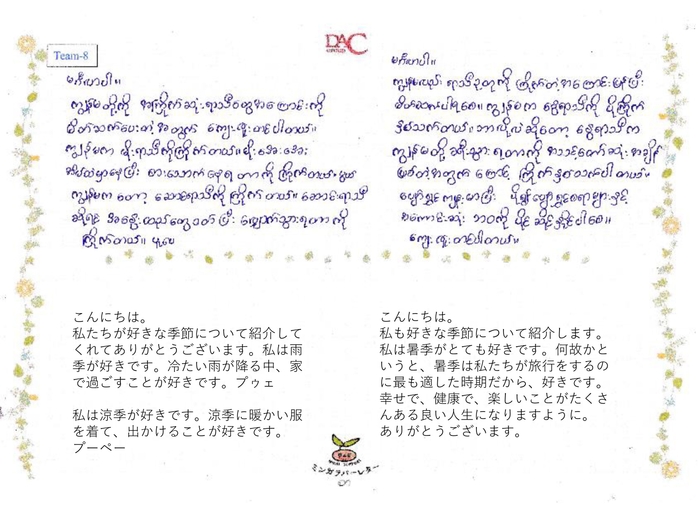 Team-8
DAC
မင်္ဂလာပါ။
ကျွန်မတို့ကို အကြိုက်ဆုံးရာသီတွေအကြောင်းကို
မိတ်ဆက်ပေးတဲ့အတွက် ကျေးဇူးတင်ပါတယ်။
ကျွန်မက မိုးရာသီကိုကြိုက်တယ်။ မိုးအေးအေး
နေရတာကို ကြိုက်တယ်။
ကျွန်မကတော့ ဆောင်းရာသီကို ကြိုက်တယ်။ ဆောင်းရာသီ
ဆိုရင် အနွေးထည်တွေဝတ်ပြီး လျှောက်သွားရတာကို
ကြိုက်တယ်။
မင်္ဂလာပါ။
ကျွန်မလည်း ရာသီဥတုကို ကြိုက်တဲ့အကြောင်း
မိတ်ဆက်ပါရစေ။ ကျွန်မက နွေရာသီကို ပိုကြိုက်
နှစ်သက်တယ်။ ဘာလို့လဲဆိုတော့ နွေရာသီက
ကျွန်မတို့ ခရီးသွားရတာကို အသင့်တော်ဆုံးအချိန်
ဖြစ်တဲ့အတွက်ကြောင့် ကြိုက်နှစ်သက်ပါတယ်။
အကောင်းဆုံး ဘဝကို ပိုင်ဆိုင်နိုင်ပါစေ။
ကျေးဇူးတင်ပါတယ်။
こんにちは。
私たちが好きな季節について紹介して
くれてありがとうございます。私は雨
季が好きです。冷たい雨が降る中、家
で過ごすことが好きです。プゥェ
私は涼季が好きです。涼季に暖かい服
を着て、出かけることが好きです。
プーペー
こんにちは。
私も好きな季節について紹介します。
私は暑季がとても好きです。何故かと
いうと、暑季は私たちが旅行をするの
に最も適した時期だから、好きです。
幸せで、健康で、楽しいことがたくさ
んある良い人生になりますように。
ありがとうございます。
ミンガラバーレター